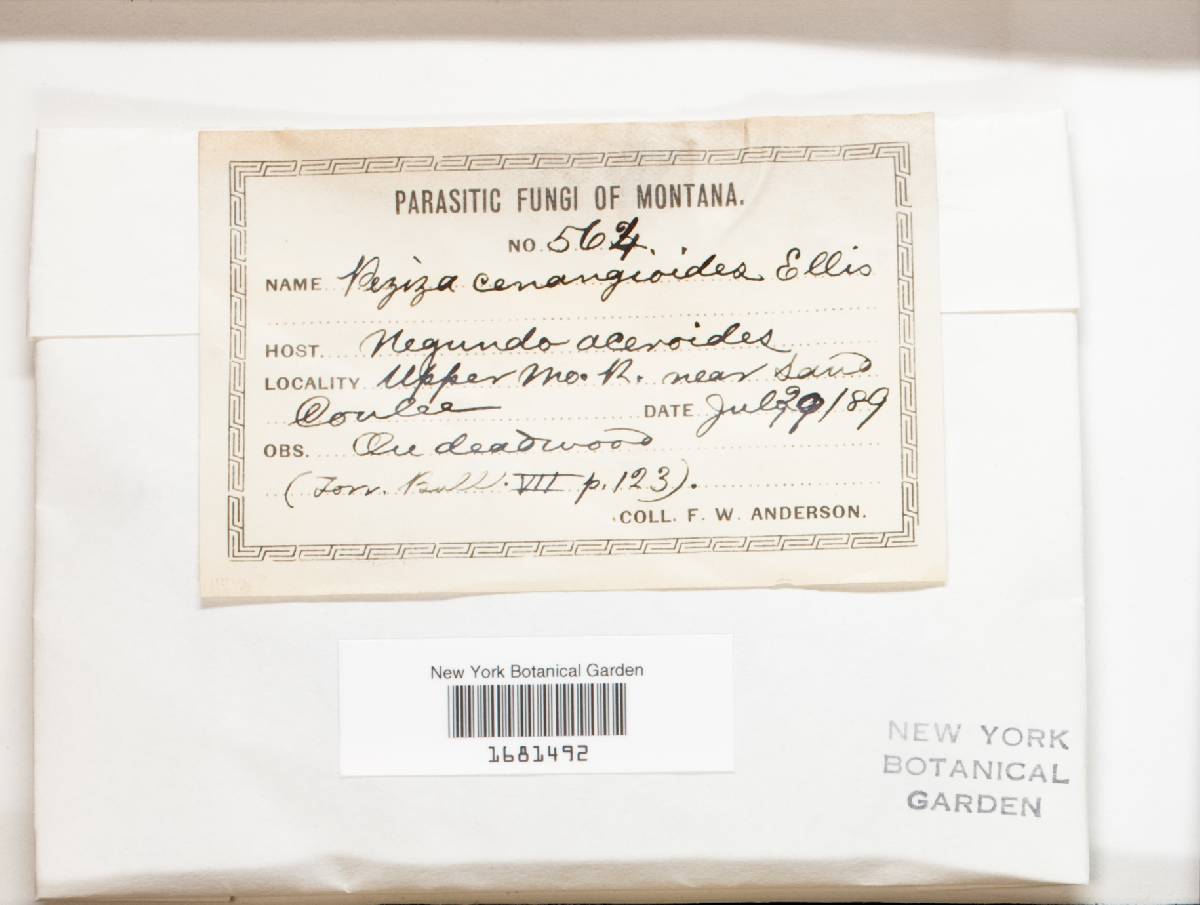 PARASITIC FUNGI OF MONTANA.
NO. 564.
NAME Peziza cenangioides Ellis
HOST. Negundo aceroides
LOCALITY Upper Mo. R. near Sand
Coulee DATE July /89
OBS. On dead wood
(Torr. Bull. VII p. 123).
COLL. F. W. ANDERSON.
New York Botanical Garden
1681492
NEW YORK
BOTANICAL
GARDEN